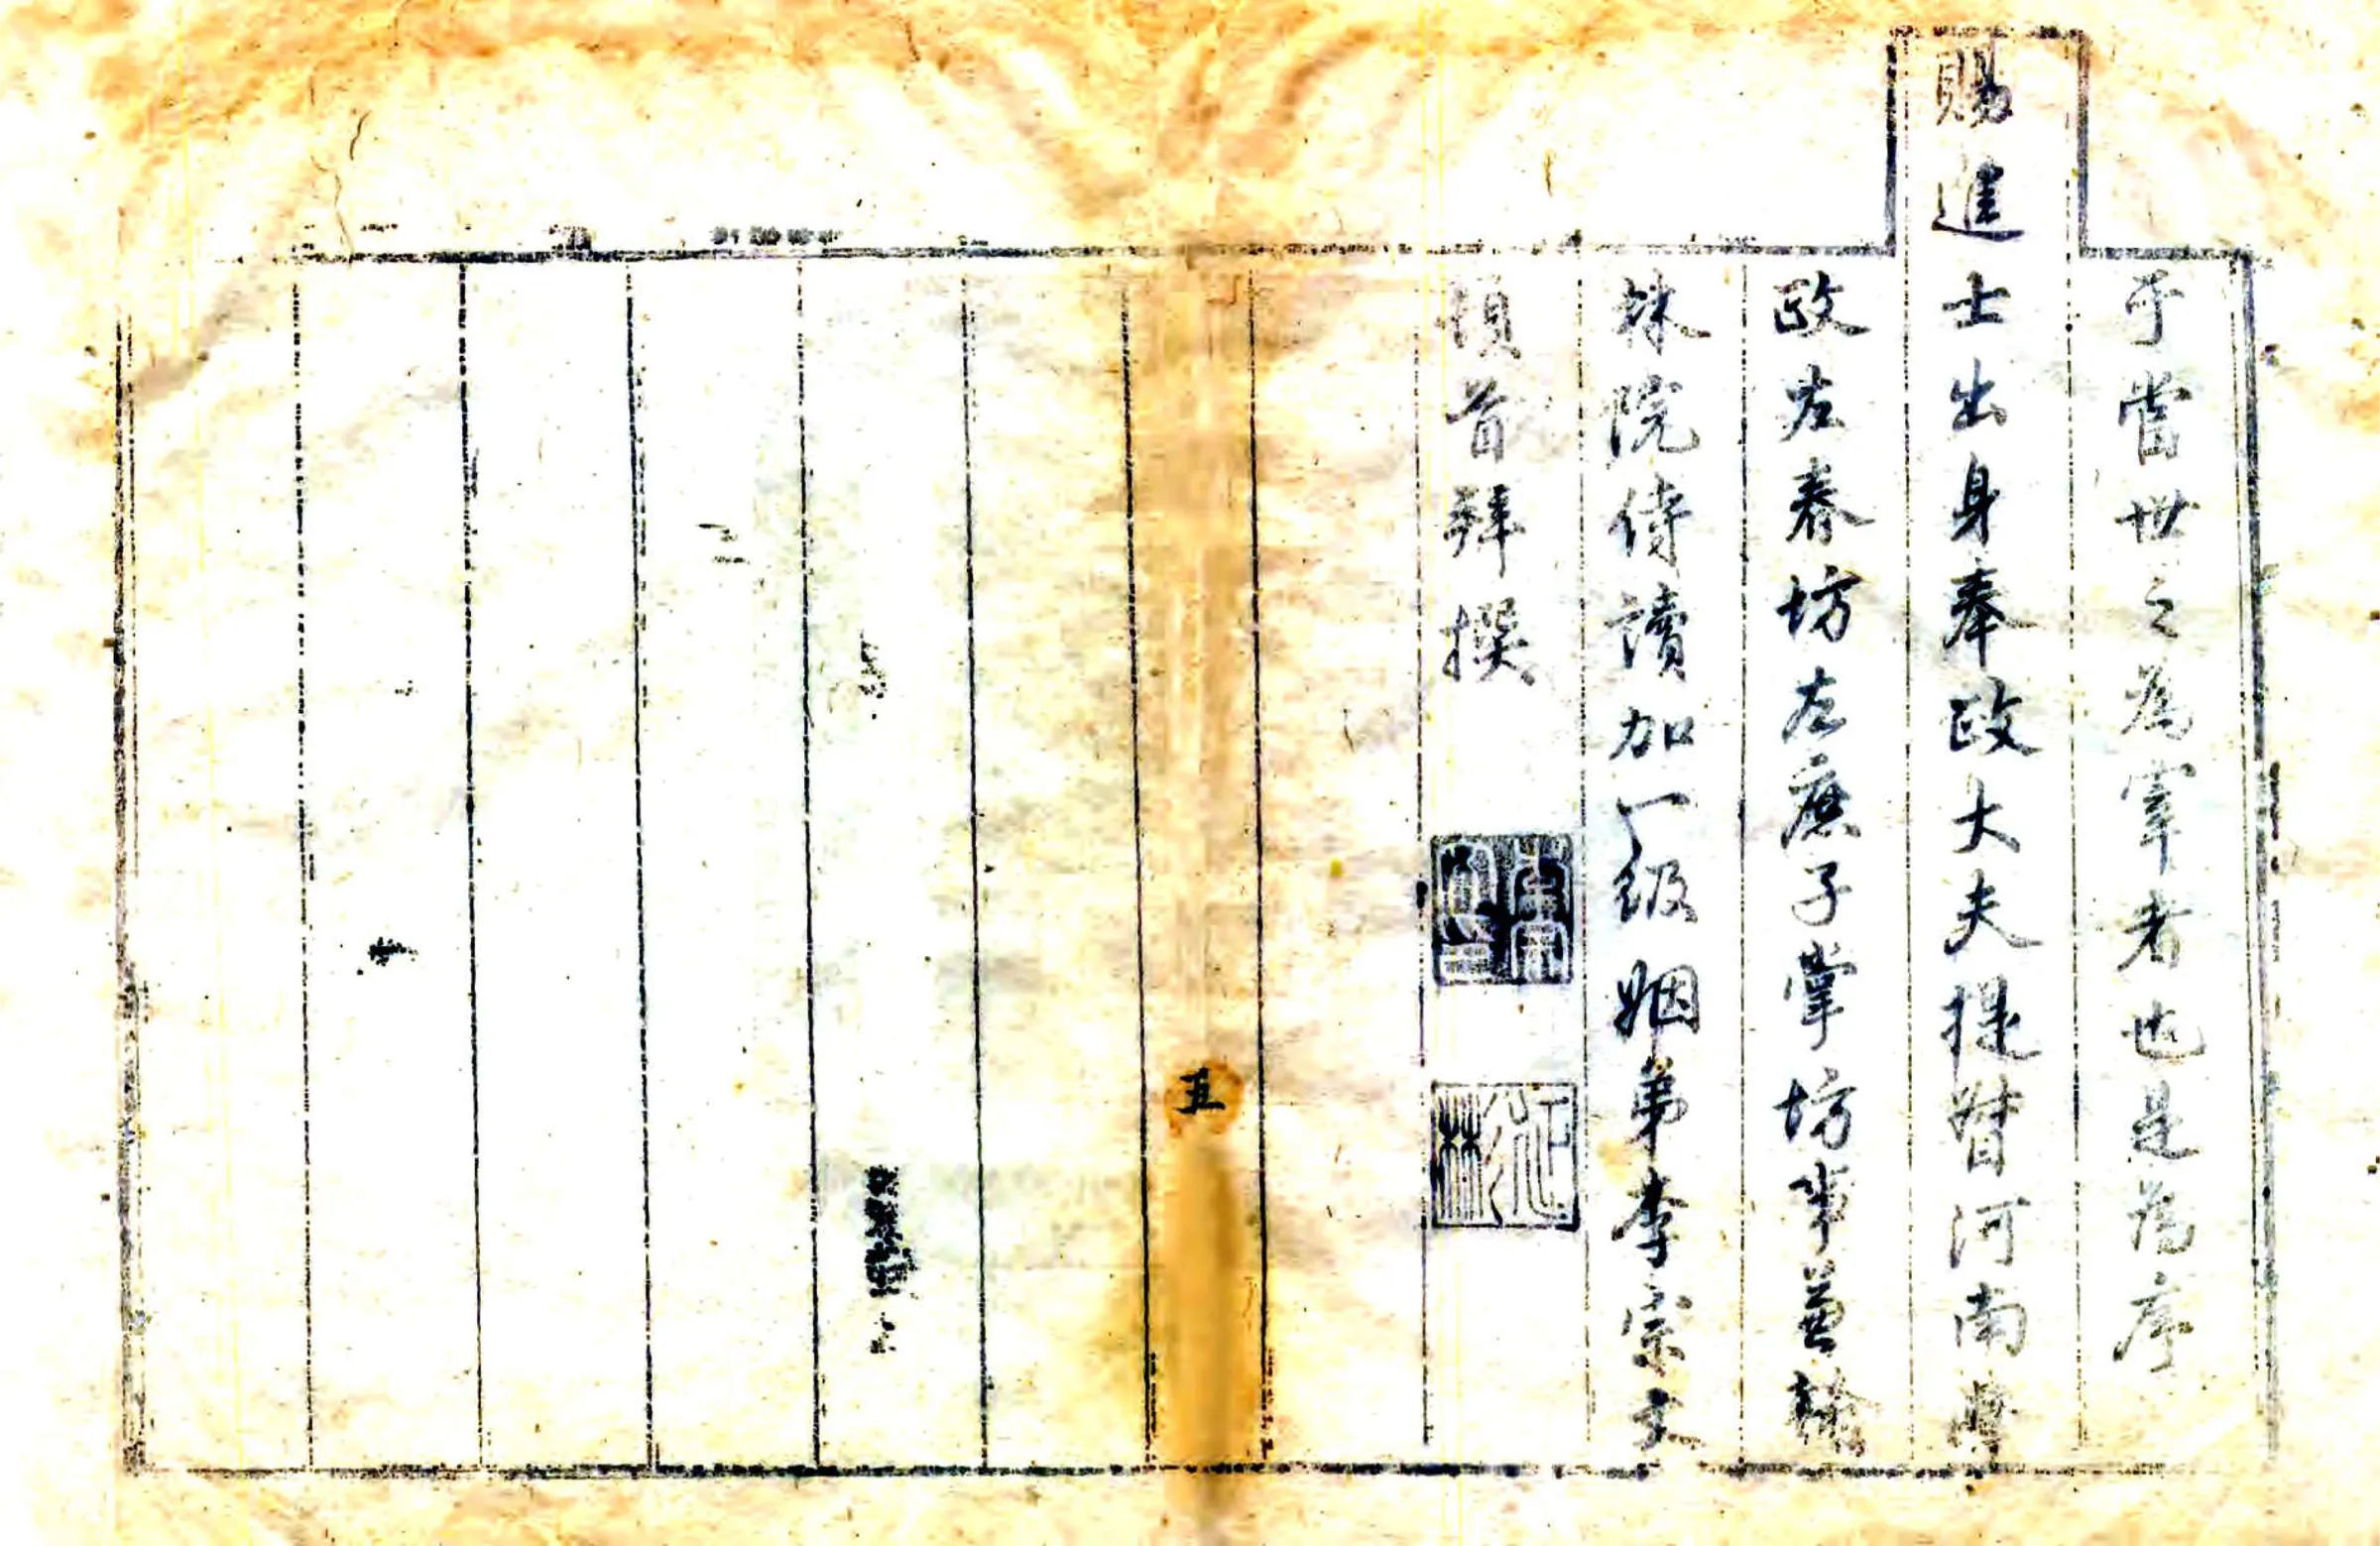 于當世之爲宰者也是爲序
賜進士出身奉政大夫提督河南學
政左春坊左庶子掌坊事兼翰
林院侍讀加一級姻弟李宗文
頓首拜撰
五